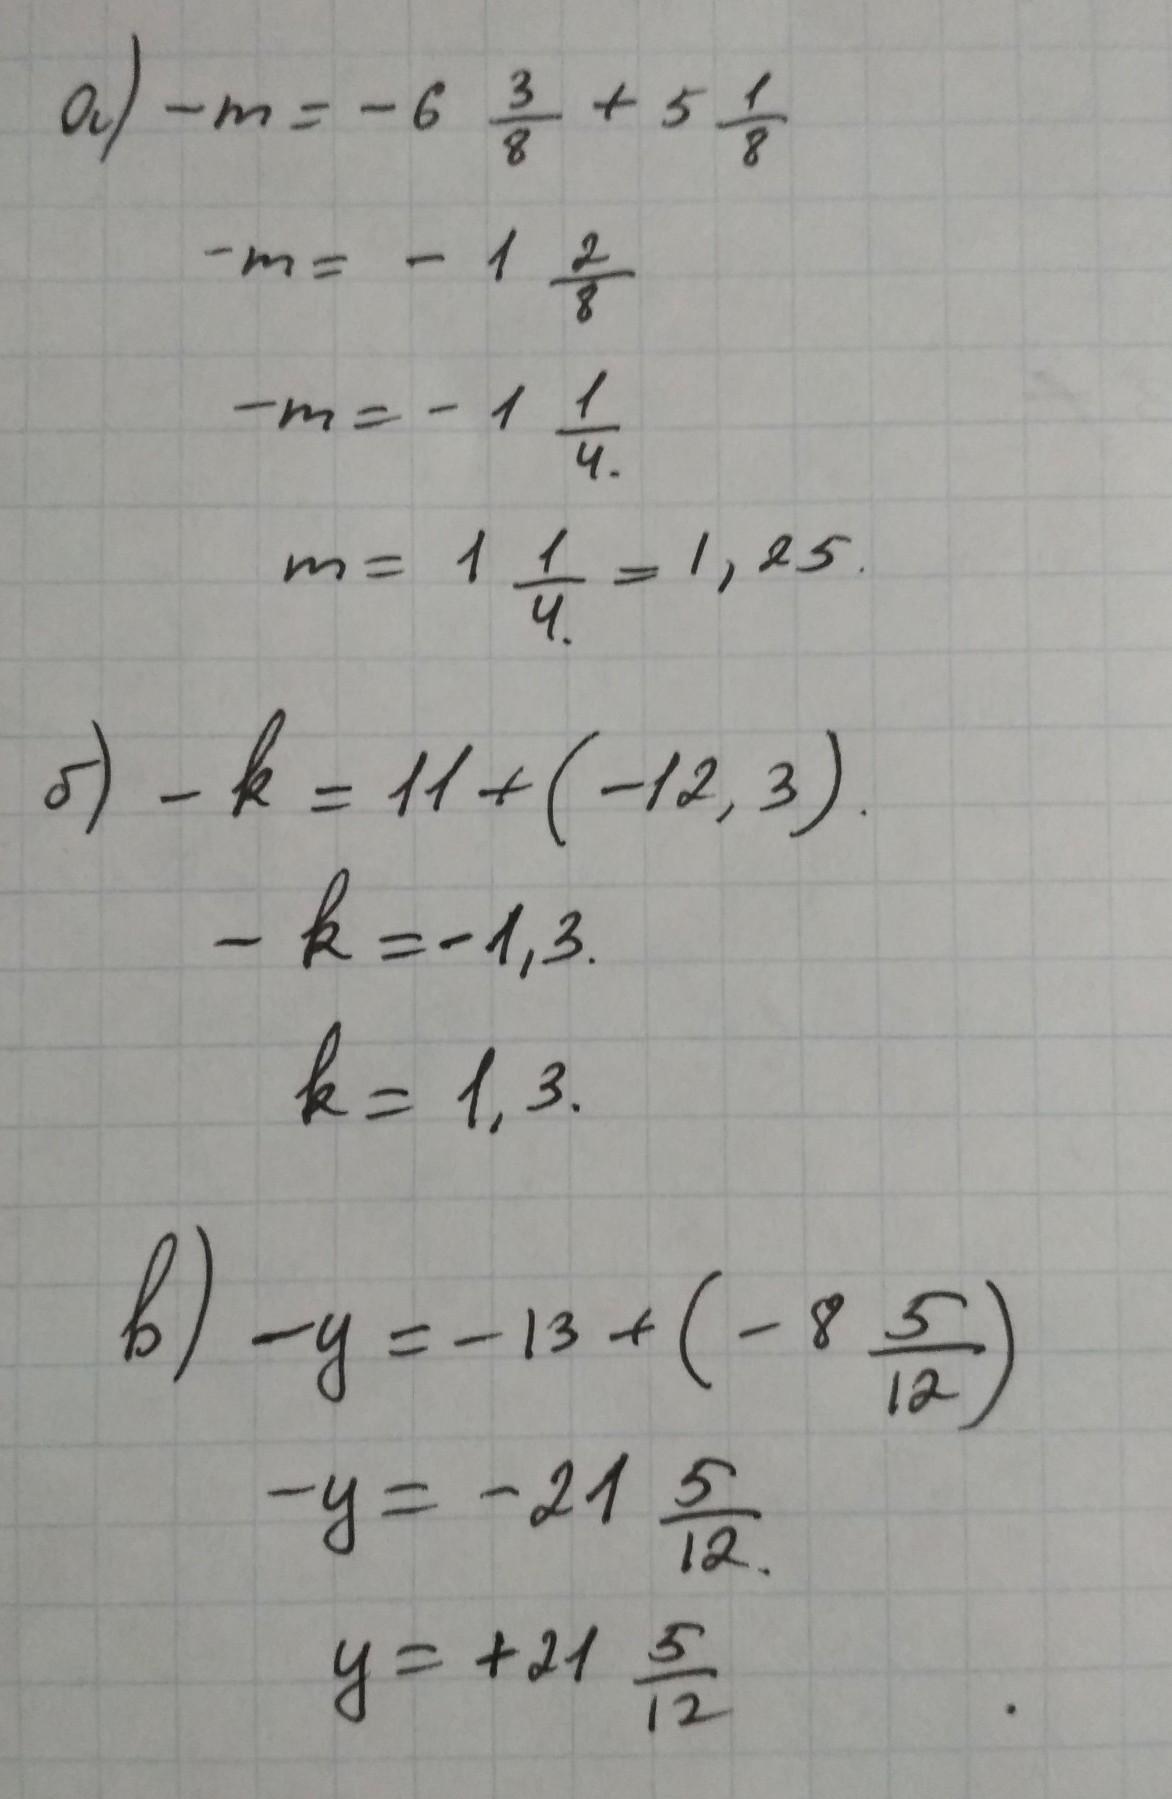 а) -m = -6 3/8 + 5 1/8
-m = - 1 2/8
-m = - 1 1/4.
m = 1 1/4. = 1,25.
б) - k = 11 + (-12,3).
- k = -1,3.
k = 1,3.
в) -y = -13 + (-8 5/12)
-y = -21 5/12.
y = +21 5/12 .